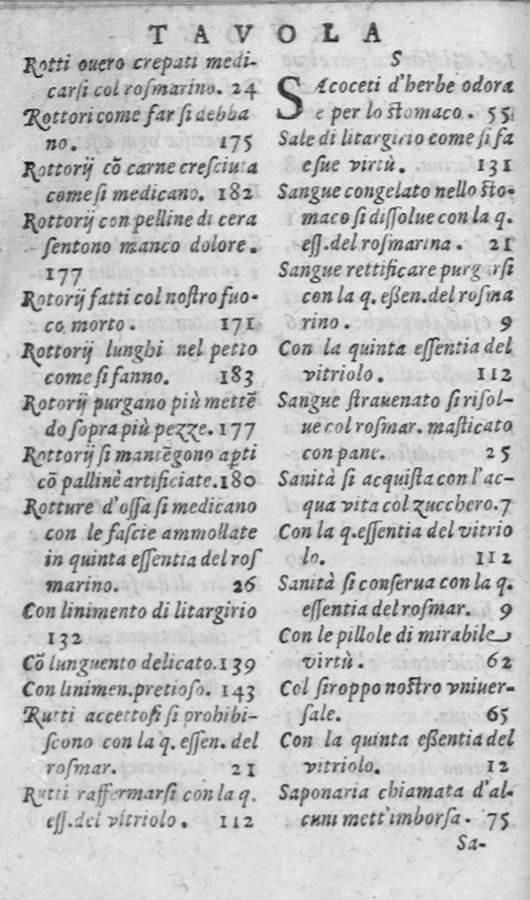 TAVOLA
Rotti ouero crepati medi-
carsi col rosmarino. 24
Rottori come far si debba
no. 175
Rottorij cō carne cresciuta
come si medicano. 182
Rottorij con pelline di cera
sentono manco dolore.
177
Rotorij fatti col nostro fuo-
co morto. 171
Rottorij lunghi nel petto
come si fanno. 183
Rotorij purgano più mettē
do sopra più pezze. 177
Rottorij si mantēgono apti
cō pallinē artificiate. 180
Rotture d'ossa si medicano
con le fascie ammollate
in quinta essentia del ros
marino. 26
Con linimento di litargirio
132
Cō lunguento delicato. 139
Con linimen. pretioso. 143
Rutti accettosi si prohibi-
scono con la q. essen. del
rosmar. 21
Rutti raffermarsi con la q.
ess. del vitriolo. 112
S
SAcoceti d'herbe odora
e per lo stomaco. 55
Sale di litargirio come si fa
e sue virtù. 131
Sangue congelato nello sto-
maco si dissolue con la q.
ess. del rosmarina. 21
Sangue rettificare purgarsi
con la q. essen. del rosma
rino. 9
Con la quinta essentia del
vitriolo. 112
Sangue strauenato si risol-
ue col rosmar. masticato
con pane. 25
Sanità si acquista con l'ac-
qua vita col zucchero. 7
Con la q. essentia del vitrio
lo. 112
Sanità si conserua con la q.
essentia del rosmar. 9
Con le pillole di mirabile
virtù. 62
Col siroppo nostro vniuer-
sale. 65
Con la quinta essentia del
vitriolo. 12
Saponaria chiamata d'al-
cuni mett'imborsa. 75
Sa-